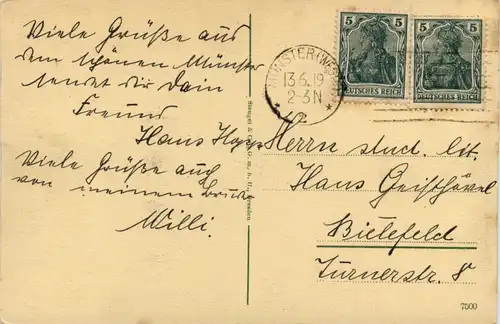 Viele Grüße aus
dem schönen Münster
sendet dir Dein
Freund
Hans
Viele Grüße auch
von meinem
Willi.
Stengel & Co., G. m. b. H., Dresden
MÜNSTER (WESTF)
13.6.19
2-3N
5 5
DEUTSCHES REICH
5 5
DEUTSCHES REICH
Herrn stud. lit.
Hans Geisthövel
Bielefeld
Turnerstr. 8
7500